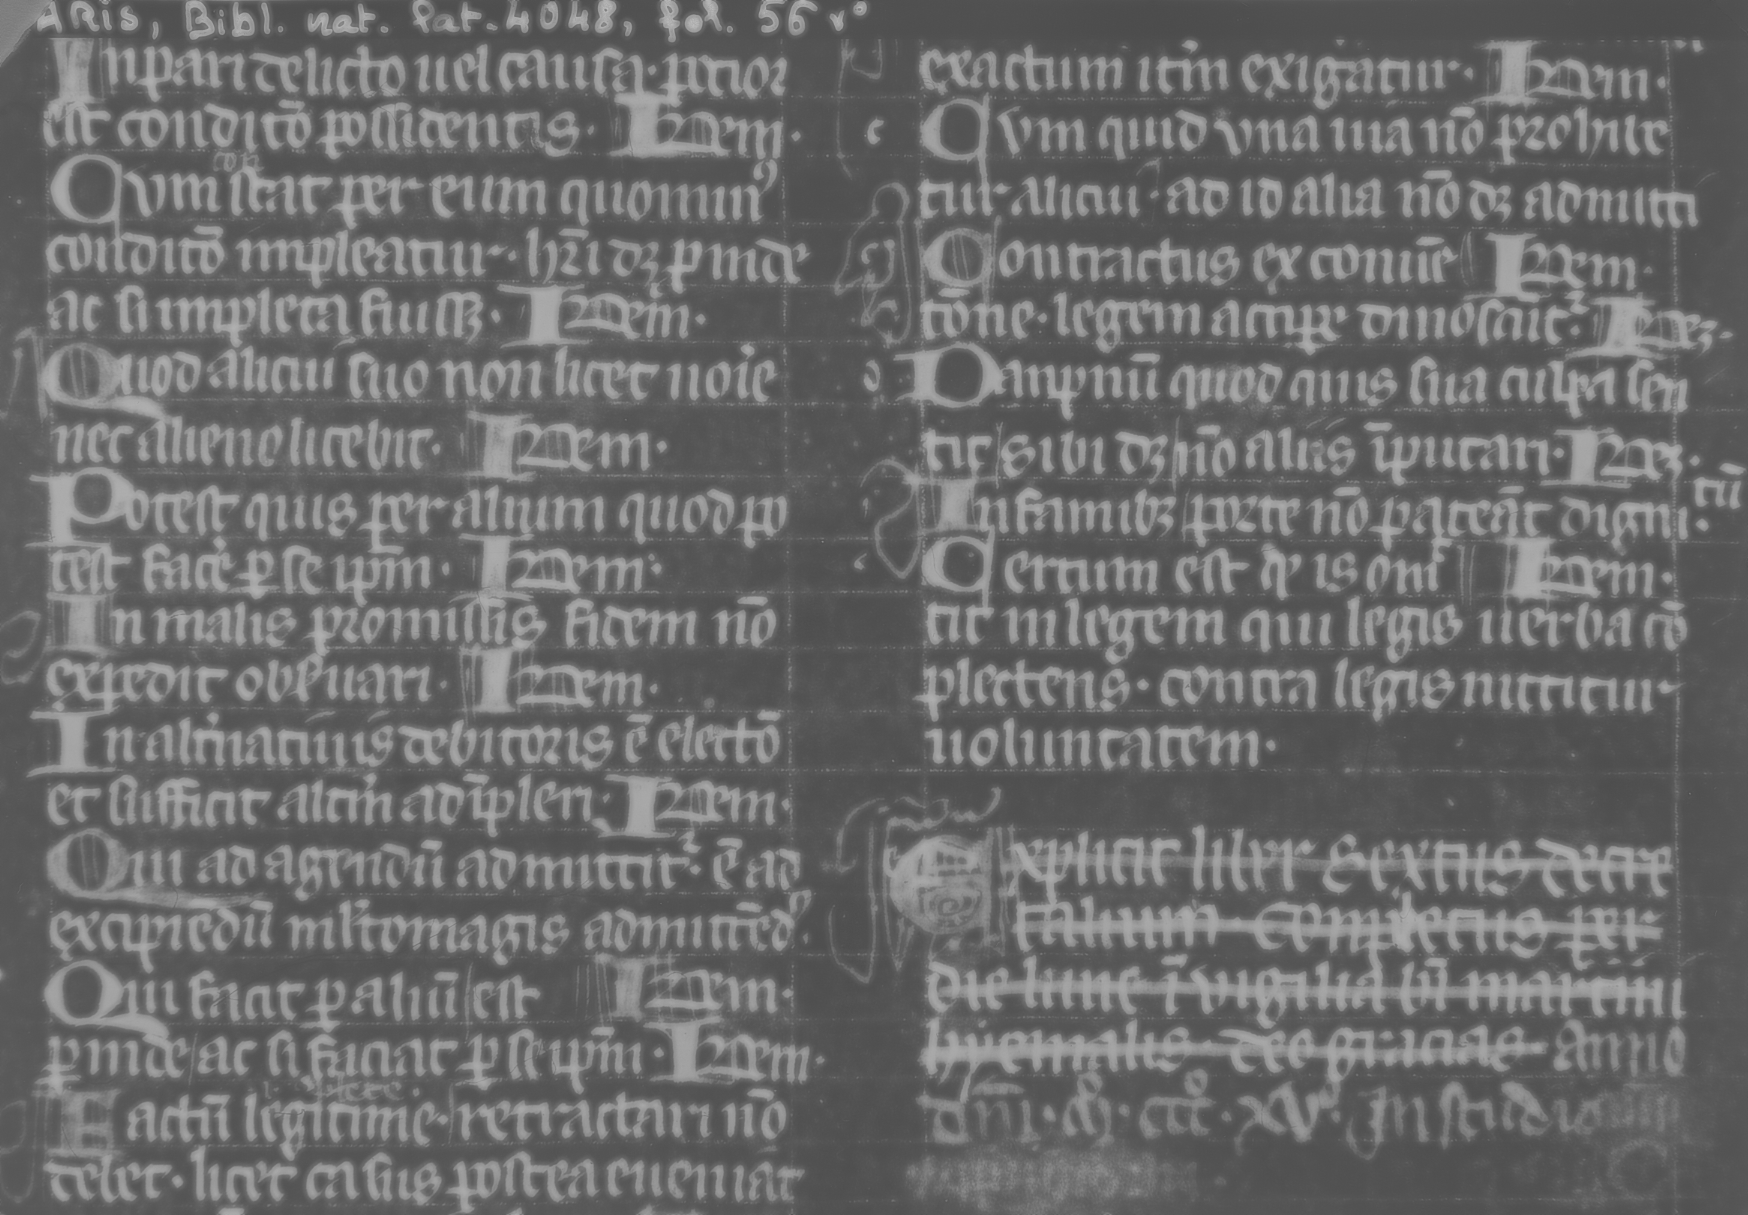 PARIS, Bibl. nat. Lat. 4048, fol. 56 rº
In pari delicto uel causa· potior
est conditō possidentis· Idem·
Cvm stat per eum quomin⁹
conditō impleatur· hr̄i dꝫ ꝑinde
ac si impleta fuissꝫ· Idem·
Quod alicui suo non licet noīe
nec alieno licebit· Idem·
Potest quis per alium quod po
test facē ꝑ se ip̄m· Idem·
In malis promissis fidem nō
expedit obs̄uari· Idem·
In alt̄natiuis debitoris ē electō
et sufficit altm̄ adīpleri· Idem·
Qui ad agendū admittit᷑· ē ad
excipiēdū ml̄tomagis admittēd⁹·
Qui facit ꝑ aliū est Idem·
ꝑinde ac si faciat ꝑ se ip̄m· Idem·
Factū legitime· retractari nō
debet· licet casus postea eueniāt
exactum itm̄ exigatur· Idem·
Cvm quid vna uia nō prohibe
tur alicui· ad id alia nō dꝫ admitti
Contractus ex conuē Idem·
tōne· legem accipe᷑ dinoscūt᷑· Idēꝫ·
Dampnū quod quis sua culpa sen
tit sibi dꝫ nō aliis īputari· Idꝫ·
tū
Infamibꝫ porte nō pateāt digni·
Certum est ꝙ is omī Idem·
tit in legem qui legis uerba cō
plectens· contra legis nittitur
uoluntatem·
Explicit liber Sextus decre
talium Completus per
die lune ī vigilia bī̄ martini
hyemalis deo gracias Anno
dn̄i· mº· cccº· xvº· In studio